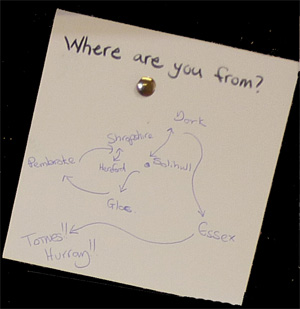 Where are you from?
Dork
Shropshire
Pembroke
Hereford
Solihull
Glos.
Essex
Totnes!!
Hurray!!